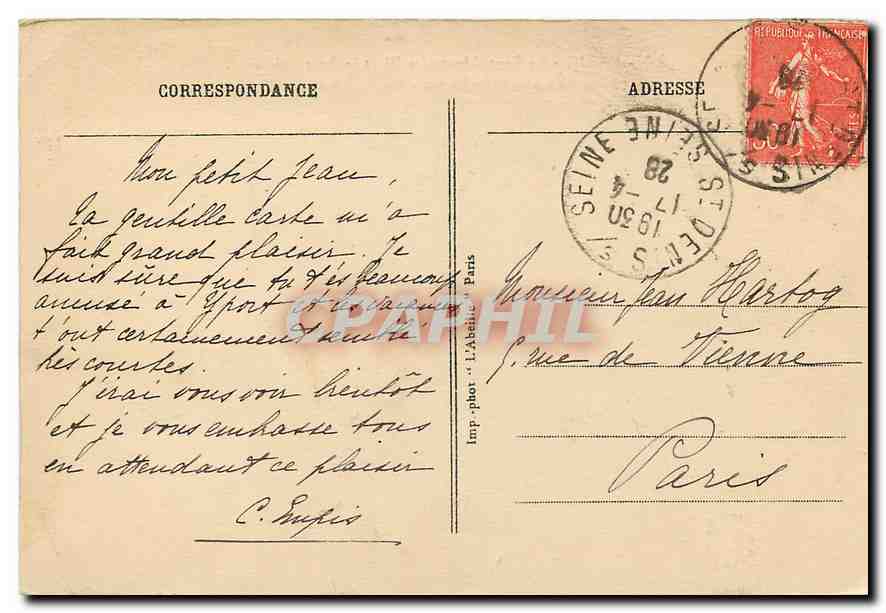 CORRESPONDANCE
ADRESSE
RÉPUBLIQUE FRANÇAISE
SEINE ST DENIS S/ SEINE
28
17 -4
1930
Mon petit Jean,
Ta gentille carte m'a
fait grand plaisir. Je
suis sûre que tu t'es beaucoup
amusé à Yport et les vacances
t'ont certainement semblé
très courtes.
J'irai vous voir bientôt
et je vous embrasse tous
en attendant ce plaisir
C. Empis
Imp.-phot "L'Abeille" Paris
CPAPHIL
Monsieur Jean Hartog
5, rue de Vienne
Paris